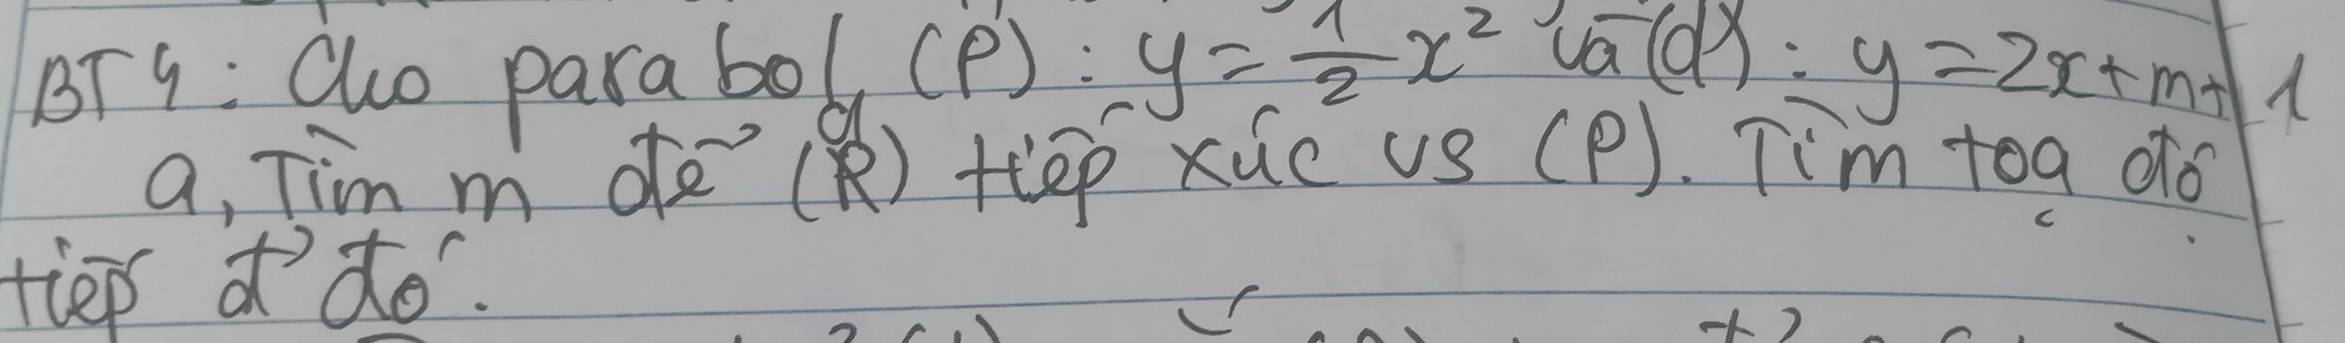 BT4: Cho parabol (P): y = 1/2 x² và (d): y = 2x + m + 1
a, Tìm m để (d) tiếp xúc vs (P). Tìm toạ độ
tiếp đ' đó.